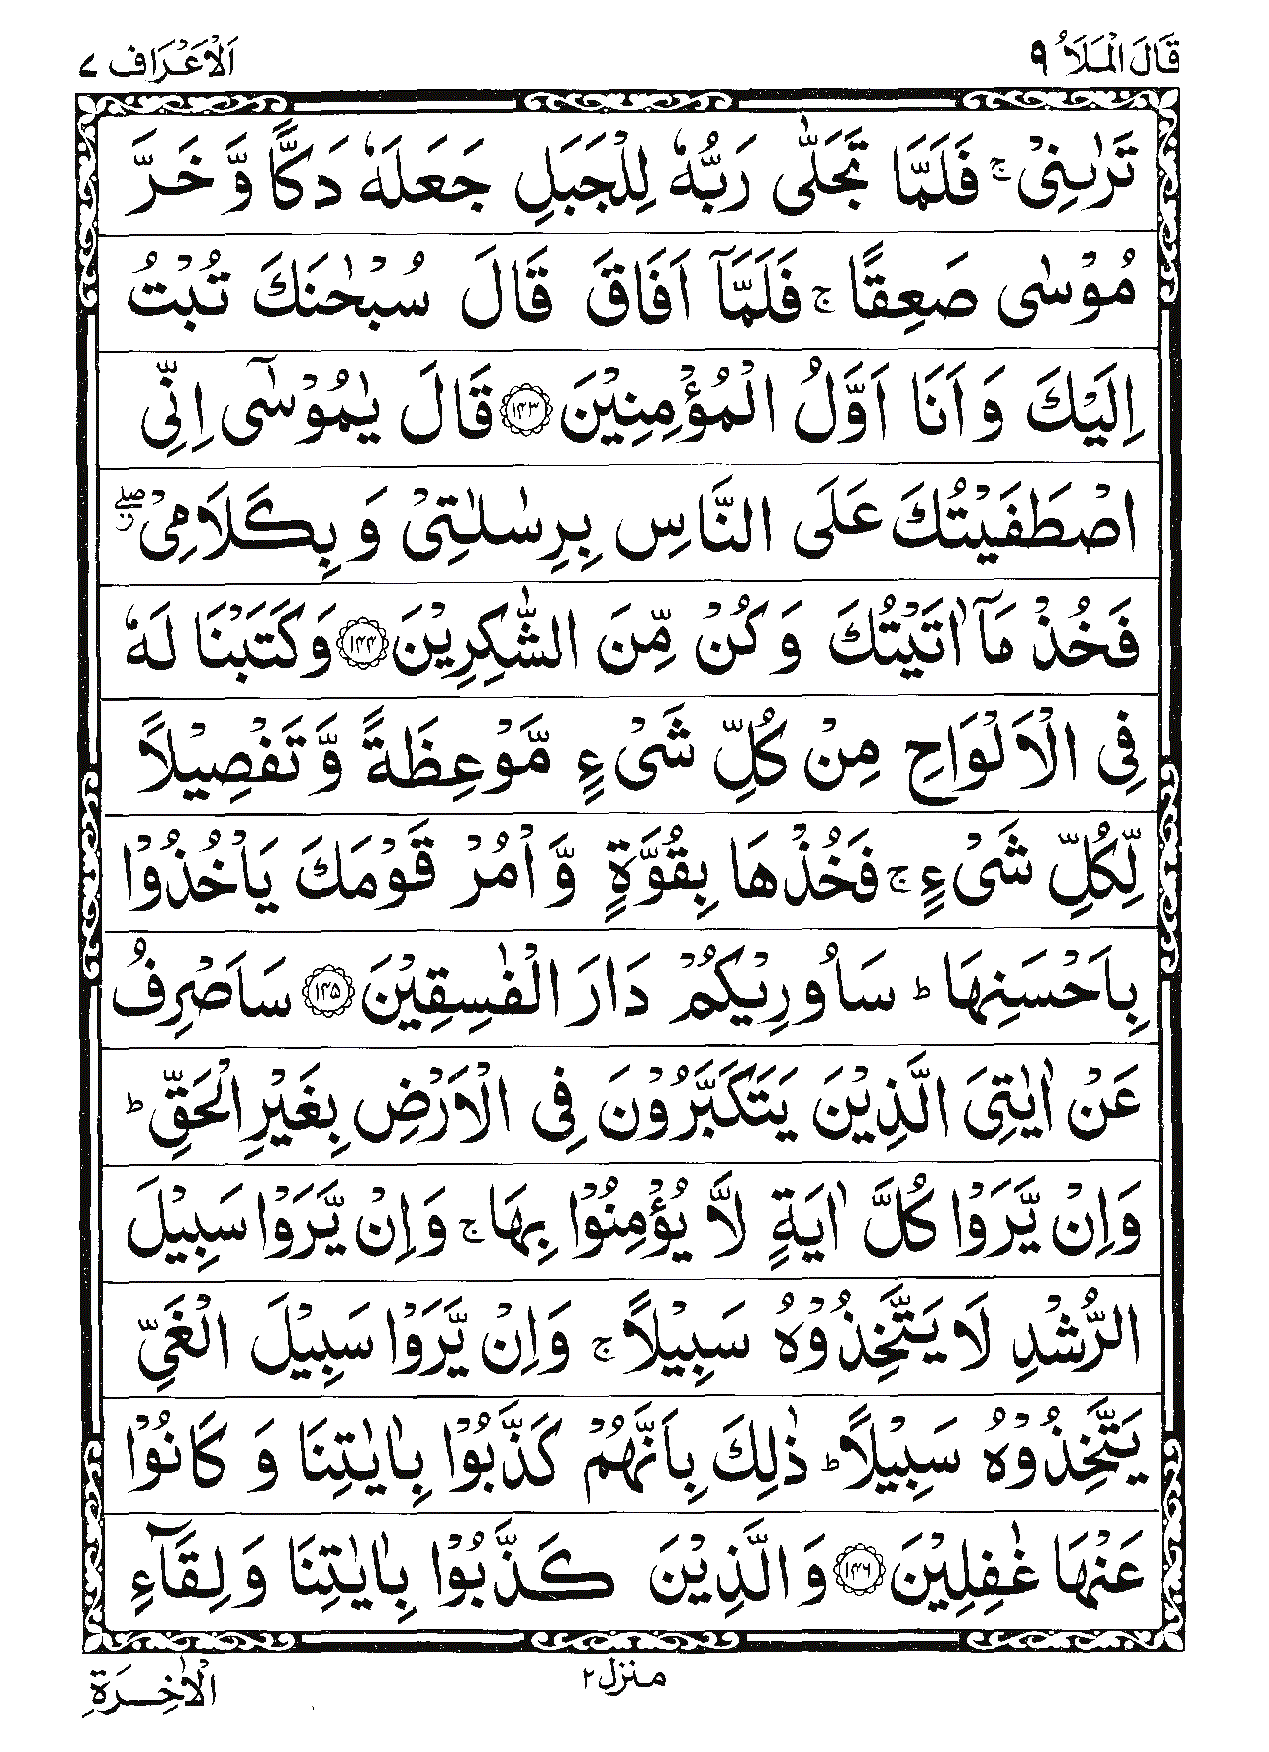 قَالَ الْمَلَاُ ٩
اَلْاَعْرَاف ٧
تَرٰىنِیْ ۚ فَلَمَّا تَجَلّٰی رَبُّهٗ لِلْجَبَلِ جَعَلَهٗ دَكًّا وَّ خَرَّ
مُوْسٰی صَعِقًا ۚ فَلَمَّاۤ اَفَاقَ قَالَ سُبْحٰنَكَ تُبْتُ
اِلَیْكَ وَ اَنَا اَوَّلُ الْمُؤْمِنِیْنَ ﴿۱۴۳﴾ قَالَ یٰمُوْسٰۤی اِنِّی
اصْطَفَیْتُكَ عَلَی النَّاسِ بِرِسٰلٰتِیْ وَ بِكَلَامِیْ ۖ
فَخُذْ مَاۤ اٰتَیْتُكَ وَ كُنْ مِّنَ الشّٰكِرِیْنَ ﴿۱۴۴﴾ وَكَتَبْنَا لَهٗ
فِی الْاَلْوَاحِ مِنْ كُلِّ شَیْءٍ مَّوْعِظَةً وَّ تَفْصِیْلًا
لِّكُلِّ شَیْءٍ ۚ فَخُذْهَا بِقُوَّةٍ وَّ اْمُرْ قَوْمَكَ یَاْخُذُوْا
بِاَحْسَنِهَا ؕ سَاُورِیْكُمْ دَارَ الْفٰسِقِیْنَ ﴿۱۴۵﴾ سَاَصْرِفُ
عَنْ اٰیٰتِیَ الَّذِیْنَ یَتَكَبَّرُوْنَ فِی الْاَرْضِ بِغَیْرِ الْحَقِّ ؕ
وَاِنْ یَّرَوْا كُلَّ اٰیَةٍ لَّا یُؤْمِنُوْا بِهَا ۚ وَاِنْ یَّرَوْا سَبِیْلَ
الرُّشْدِ لَا یَتَّخِذُوْهُ سَبِیْلًا ۚ وَاِنْ یَّرَوْا سَبِیْلَ الْغَیِّ
یَتَّخِذُوْهُ سَبِیْلًا ؕ ذٰلِكَ بِاَنَّهُمْ كَذَّبُوْا بِاٰیٰتِنَا وَ كَانُوْا
عَنْهَا غٰفِلِیْنَ ﴿۱۴۶﴾ وَ الَّذِیْنَ كَذَّبُوْا بِاٰیٰتِنَا وَ لِقَآءِ
منزل ۲
الْاٰخِرَةِ